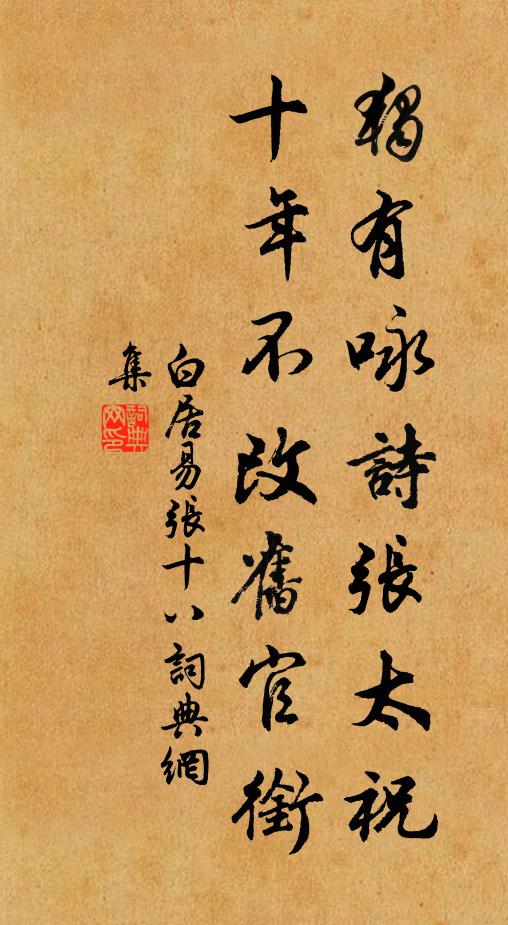 獨有咏詩張太祝
十年不改舊官銜
白居易張十八詞典網
集
詞典網印